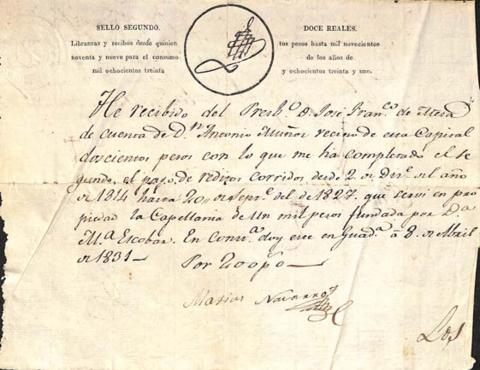 SELLO SEGUNDO.
DOCE REALES.
Libranzas y recibos desde quinien
tos pesos hasta mil novecientos
noventa y nueve para el consumo
de los años de
mil ochocientos treinta
y ochocientos treinta y uno.
He recibido del Presb.º D. José Fran.co de Mesa
de cuenta de D.n Antonio Muñoz vecino de esta Capital
doscientos pesos con lo que me ha completado el se
gundo, el pago, de reditos corridos desde 2 de Dic.e del año
de 1814 hasta 20 de Sept.e del de 1827 que servi en pro
piedad la Capellania de Un mil pesos fundada por D.a
M.a Escobar. En Const.a doy este en Guad.a á 8 de Abril
de 1831
Por 200 p.s
Matias Navarro
Los